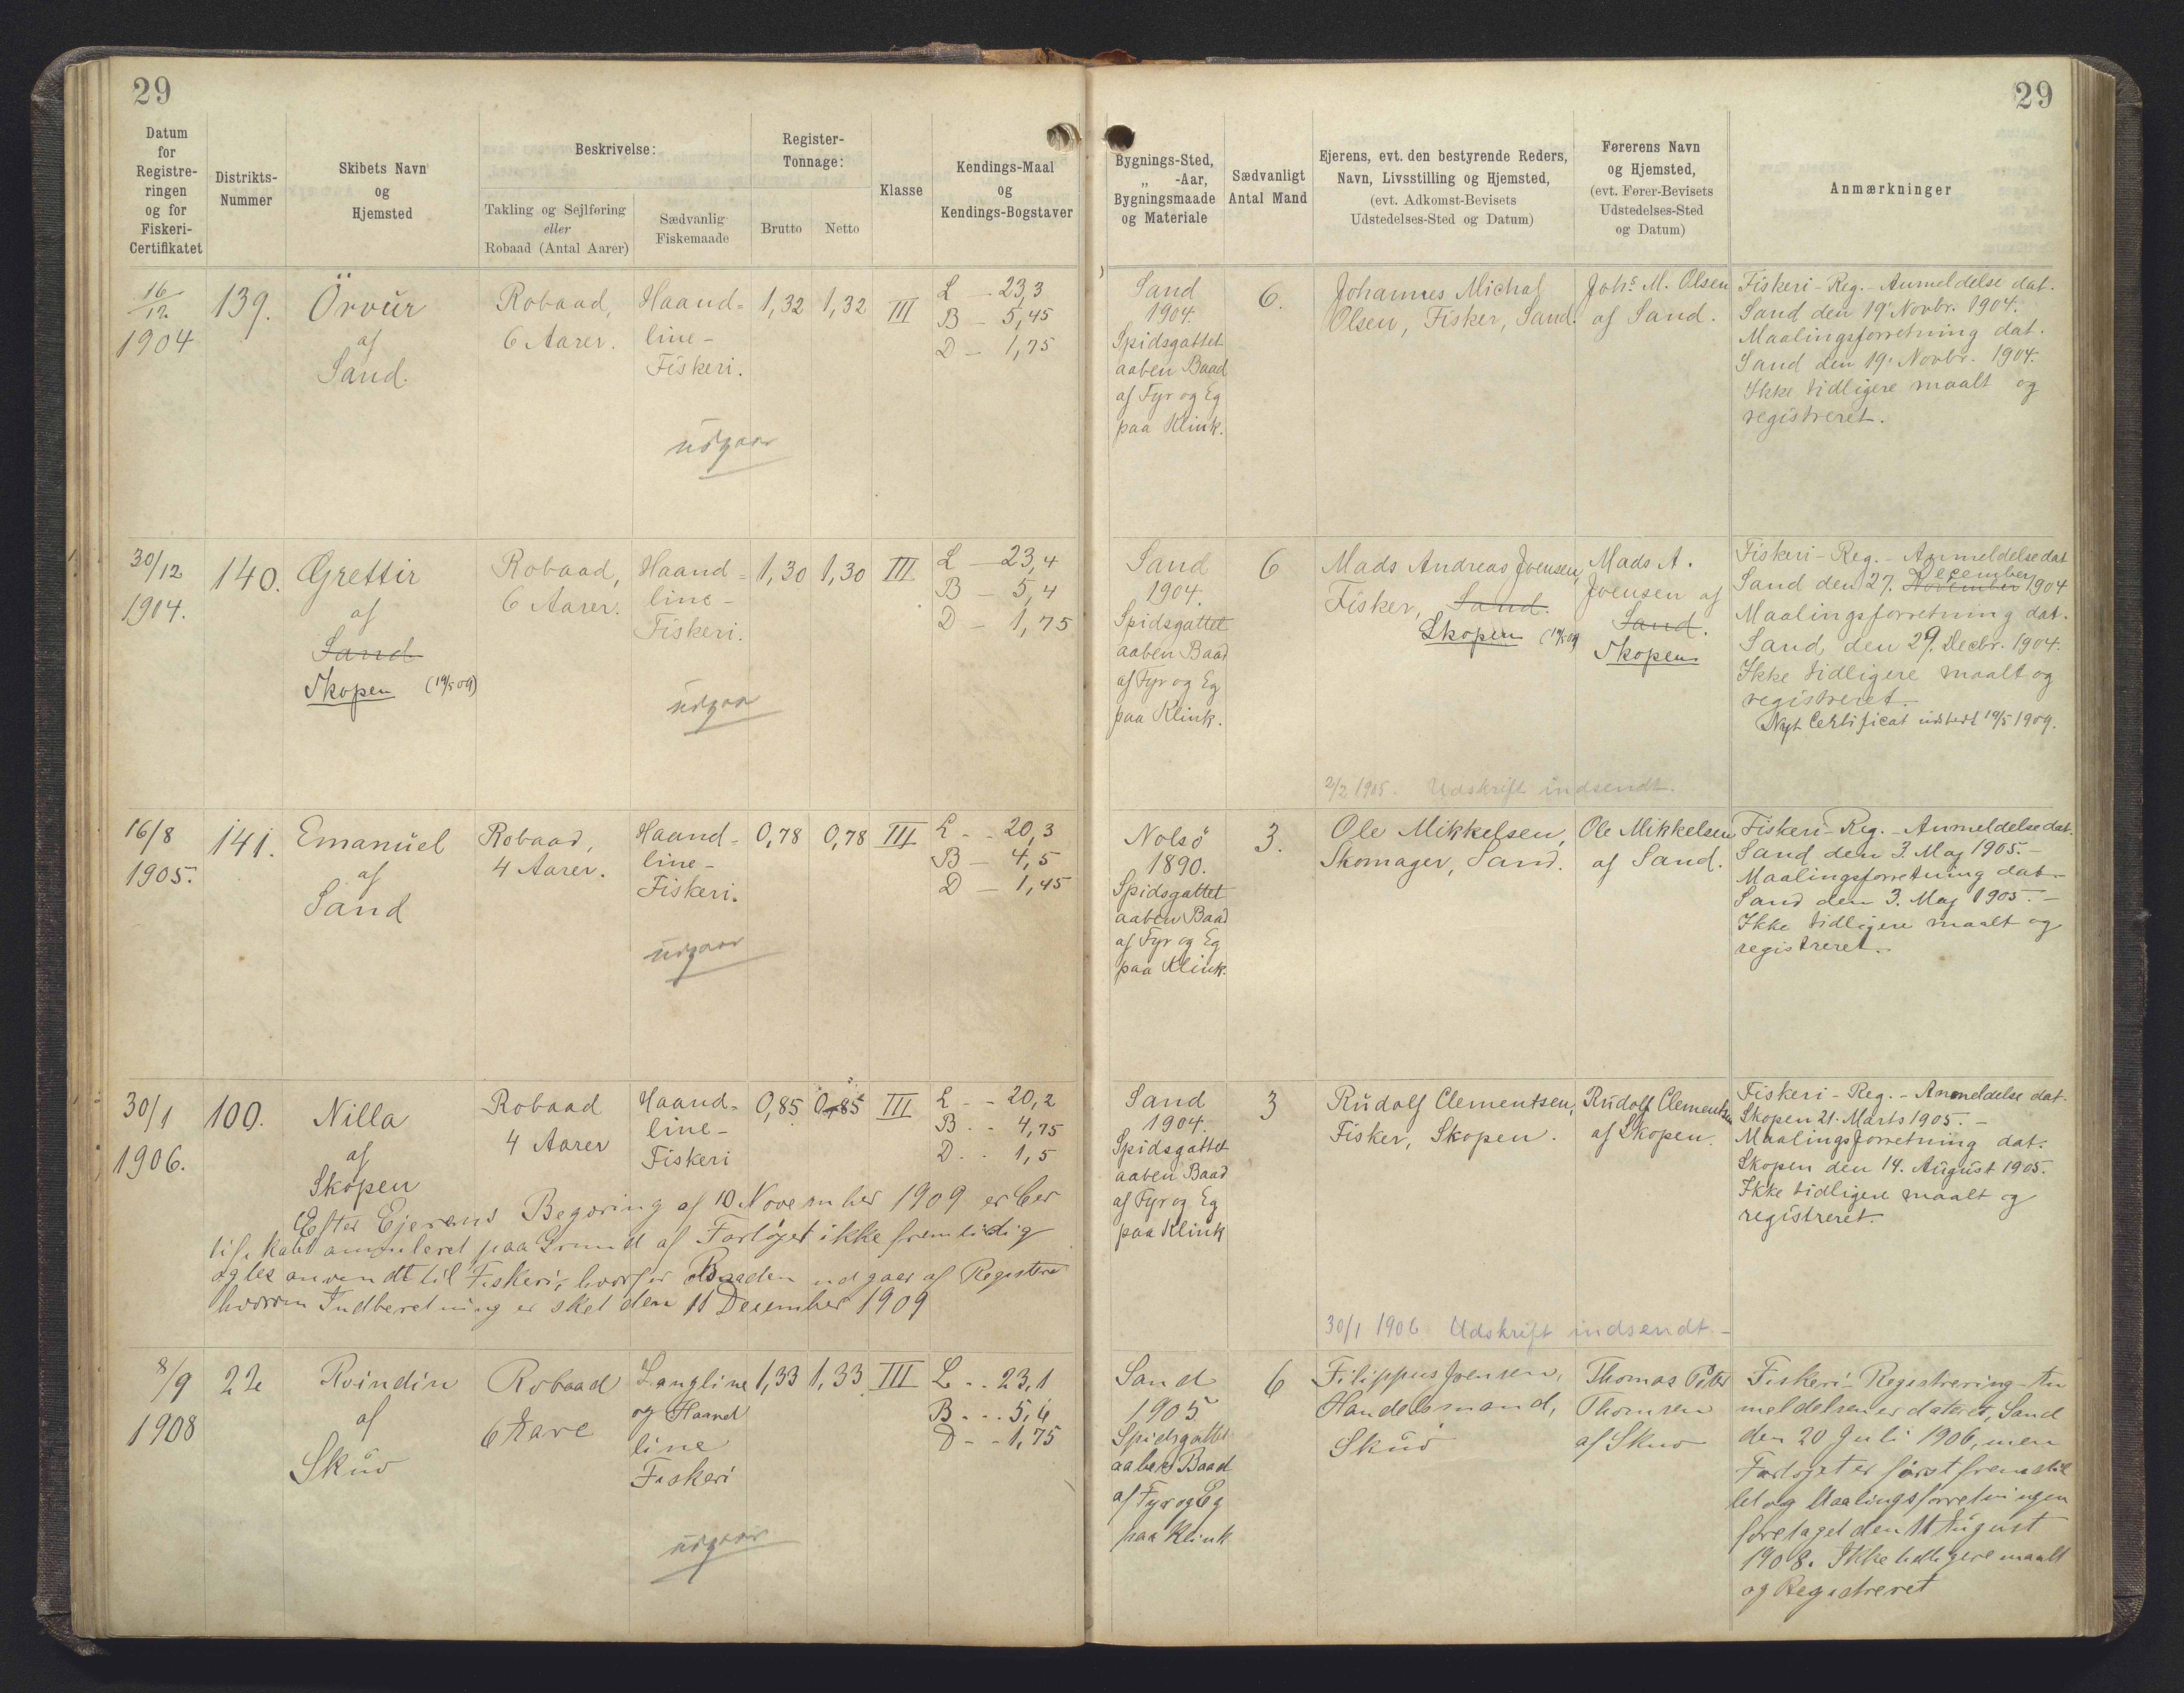 29
29
Datum
for
Registre-
ringen
og for
Fiskeri-
Certifikatet
Distrikts-
Nummer
Skibets Navn
og
Hjemsted
Beskrivelse:
Takling og Sejlføring
eller
Robaad (Antal Aarer)
Sædvanlig
Fiskemaade
Register-
Tonnage:
Brutto
Netto
Klasse
Kendings-Maal
og
Kendings-Bogstaver
Bygnings-Sted,
„ -Aar,
Bygningsmaade
og Materiale
Sædvanligt
Antal Mand
Ejerens, evt. den bestyrende Reders,
Navn, Livsstilling og Hjemsted,
(evt. Adkomst-Bevisets
Udstedelses-Sted og Datum)
Førerens Navn
og Hjemsted,
(evt. Fører-Bevisets
Udstedelses-Sted
og Datum)
Anmærkninger
16/12
1904
139.
Örvur
af
Sand.
Robaad,
6 Aarer.
Haand-
line-
Fiskeri.
1,32
1,32
III
L - 23,3
B - 5,45
D - 1,75
udgaar
Sand
1904.
Spidsgattet
aaben Baad
af Fyr og Eg
paa Klink.
6.
Johannes Michal
Olsen, Fisker, Sand.
Johs. M. Olsen
af Sand.
Fiskeri-Reg.-Anmeldelse dat.
Sand den 19. Novbr. 1904.
Maalingsforretning dat.
Sand den 19. Novbr. 1904.
Ikke tidligere maalt og
registreret.
30/12
1904.
140.
Grettir
af
Sand
Skopen (19/5 09)
Robaad,
6 Aarer.
Haand-
line-
Fiskeri.
1,30
1,30
III
L - 23,4
B - 5,4
D - 1,75
udgaar
Sand
1904.
Spidsgattet
aaben Baad
af Fyr og Eg
paa Klink.
6
Mads Andreas Joensen,
Fisker, Sand.
Skopen (19/5 09)
Mads A.
Joensen af
Sand.
Skopen
Fiskeri-Reg.-Anmeldelse dat
December
Sand den 27. November 1904
Maalingsforretning dat.
Sand den 29. Decbr. 1904.
Ikke tidligere maalt og
registreret.
Nyt Certificat udstedt 19/5 1909.
2/2 1905. Udskrift indsendt.
16/8
1905.
141.
Emanuel
af
Sand
Robaad,
4 Aarer.
Haand-
line-
Fiskeri.
0,78
0,78
III
L - - 20,3
B - 4,5
D - 1,45
udgaar
Nolsö
1890.
Spidsgattet
aaben Baad
af Fyr og Eg
paa Klink.
3.
Ole Mikkelsen,
Skomager, Sand.
Ole Mikkelsen
af Sand.
Fiskeri-Reg.-Anmeldelse dat.
Sand den 3. Maj 1905.-
Maalingsforretning dat.-
Sand den 3. Maj 1905.-
Ikke tidligere maalt og
registreret.
30/1
1906.
100.
Nilla
af
Skopen
Robaad
4 Aarer
Haand-
line-
Fiskeri
0,85
0,85
III
L - - 20,2
B - - 4,75
D - - 1,5
Efter Ejerens Begæring af 10 November 1909 er Cer
tifikatet annuleret paa Grund af Fartøjet ikke fremtidig
agtes anvendt til Fiskeri, hvorfor Baaden udgaar af Registeret
hvorom Indberetning er sket den 11 December 1909
Sand
1904.
Spidsgattet
aaben Baad
af Fyr og Eg
paa Klink
3
Rudolf Clementsen,
Fisker, Skopen.
Rudolf Clementsen
af Skopen.
Fiskeri-Reg.-Anmeldelse dat.
Skopen 21. Marts 1905.-
Maalingsforretning dat.
Skopen den 14. August 1905.
Ikke tidligere maalt og
registreret.
30/1 1906 Udskrift indsendt.-
8/9
1908
22
Roindin
af
Skuø
Robaad
6 Aare
Langline
og Haand
line
Fiskeri
1,33
1,33
III
L - - 23,1
B - - - 5,6
D - - 1,75
udgaar
Sand
1905
Spidsgattet
aaben Baad
af Fyr og Eg
paa Klink
6
Filippus Joensen,
Handelsmand,
Skuø
Thomas Peter
Thomsen
af Skuø
Fiskeri-Registrering-An
meldelsen er dateret, Sand
den 20 Juli 1906, men
Fartøjet er først fremstil
let og Maalingsforretningen
foretaget den 11 August
1908. Ikke tidligere maalt
og Registreret